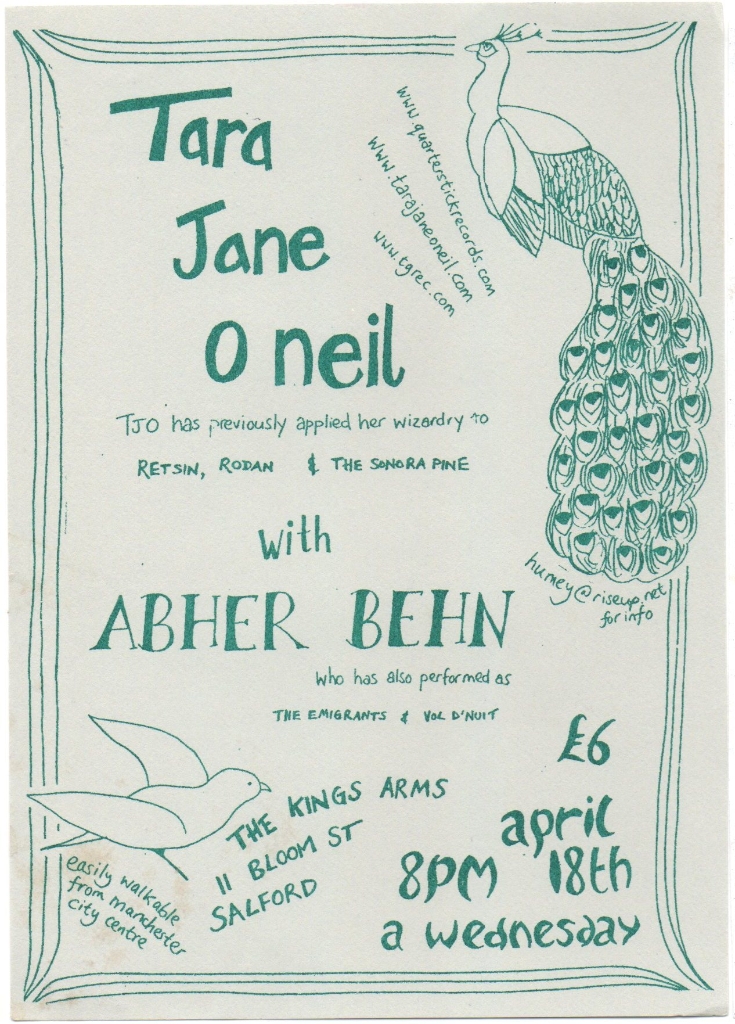 Tara
Jane
O neil
www.quarterstickrecords.com
www.tarajaneoneil.com
www.tgrec.com
TJO has previously applied her wizardry to
RETSIN, RODAN & THE SONORA PINE
with
ABHER BEHN
who has also performed as
THE EMIGRANTS & VOL D'NUIT
humey@riseup.net
for info
£6
april
18th
8PM
a wednesday
THE KINGS ARMS
11 BLOOM ST
SALFORD
easily walkable
from manchester
city centre